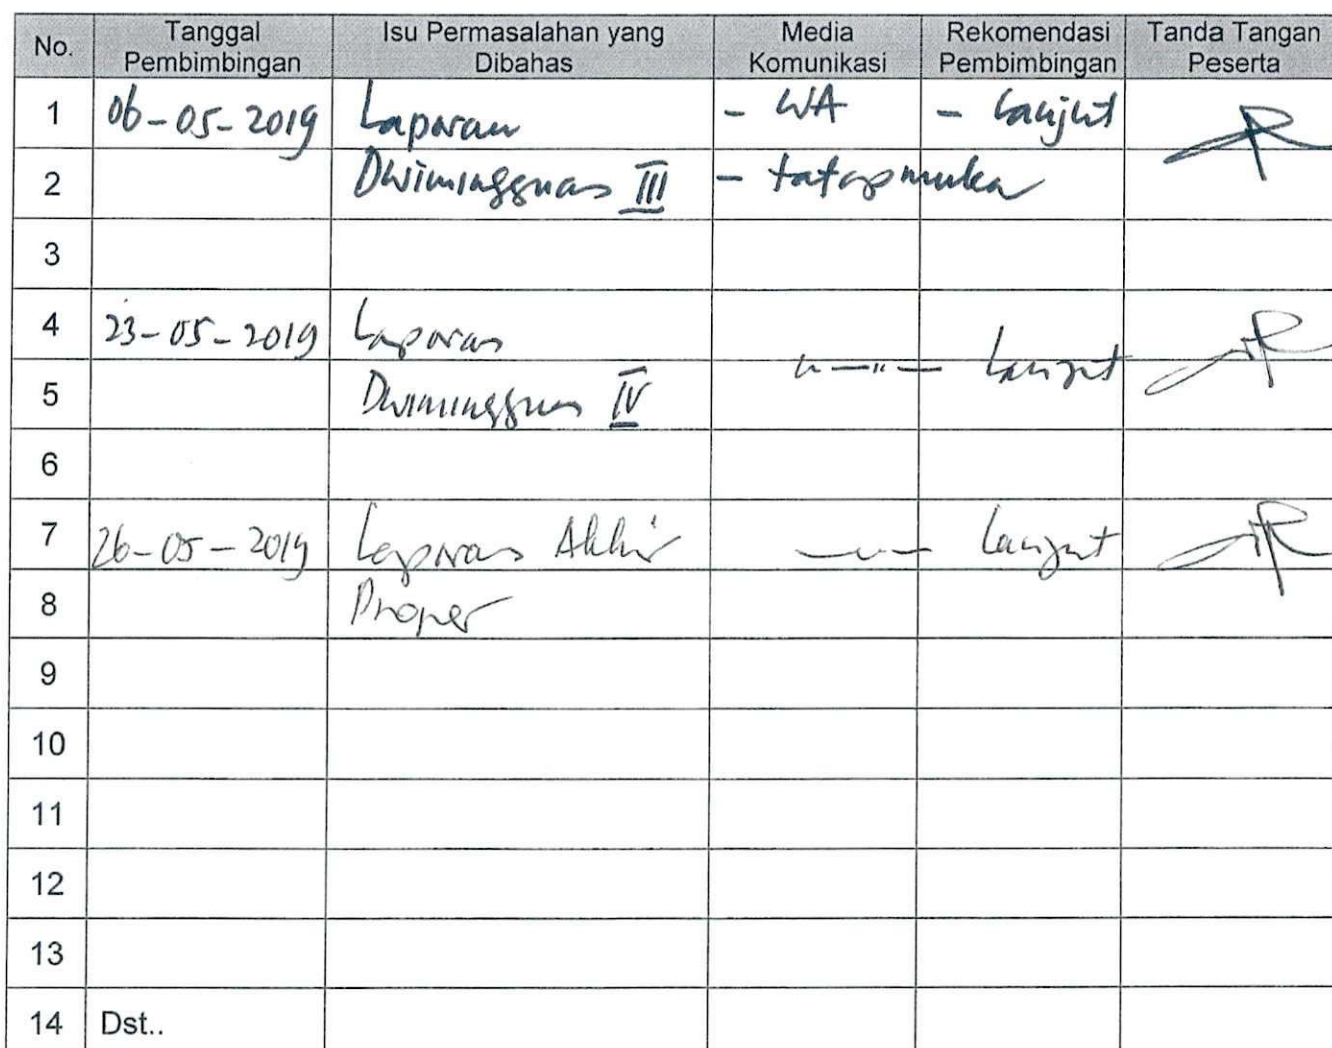 No. Tanggal Pembimbingan Isu Permasalahan yang Dibahas Media Komunikasi Rekomendasi Pembimbingan Tanda Tangan Peserta
1 06-05-2019 Laporan - WA - Lanjut
2 Dwimingguan III - tatap muka
3
4 23-05-2019 Laporan
5 Dwimingguan IV — " — Lanjut
6
7 26-05-2019 Laporan Akhir — " — Lanjut
8 Proper
9
10
11
12
13
14 Dst..